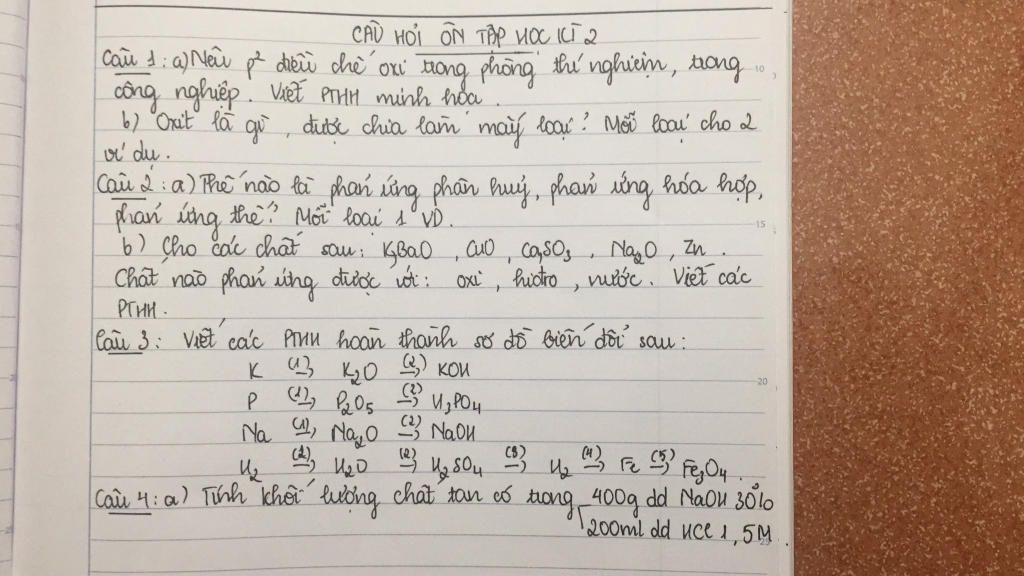 CÂU HỎI ÔN TẬP HỌC KÌ 2
Câu 1: a) Nêu p² điều chế oxi trong phòng thí nghiệm, trong
công nghiệp. Viết PTHH minh họa.
b) Oxit là gì, được chia làm mấy loại? Mỗi loại cho 2
ví dụ.
Câu 2: a) Thế nào là phản ứng phân huỷ, phản ứng hóa hợp,
phản ứng thế? Mỗi loại 1 VD.
b) Cho các chất sau: K, BaO, CuO, Ca, SO3, Na2O, Zn.
Chất nào phản ứng được với: oxi, hidro, nước. Viết các
PTHH.
Câu 3: Viết các PTHH hoàn thành sơ đồ biến đổi sau:
K (1)→ K2O (2)→ KOH
P (1)→ P2O5 (2)→ H3PO4
Na (1)→ Na2O (2)→ NaOH
H2 (1)→ H2O (2)→ H2SO4 (3)→ H2 (4)→ Fe (5)→ Fe3O4.
Câu 4: a) Tính khối lượng chất tan có trong 400g dd NaOH 30%
200ml dd HCl 1,5M
10
15
20